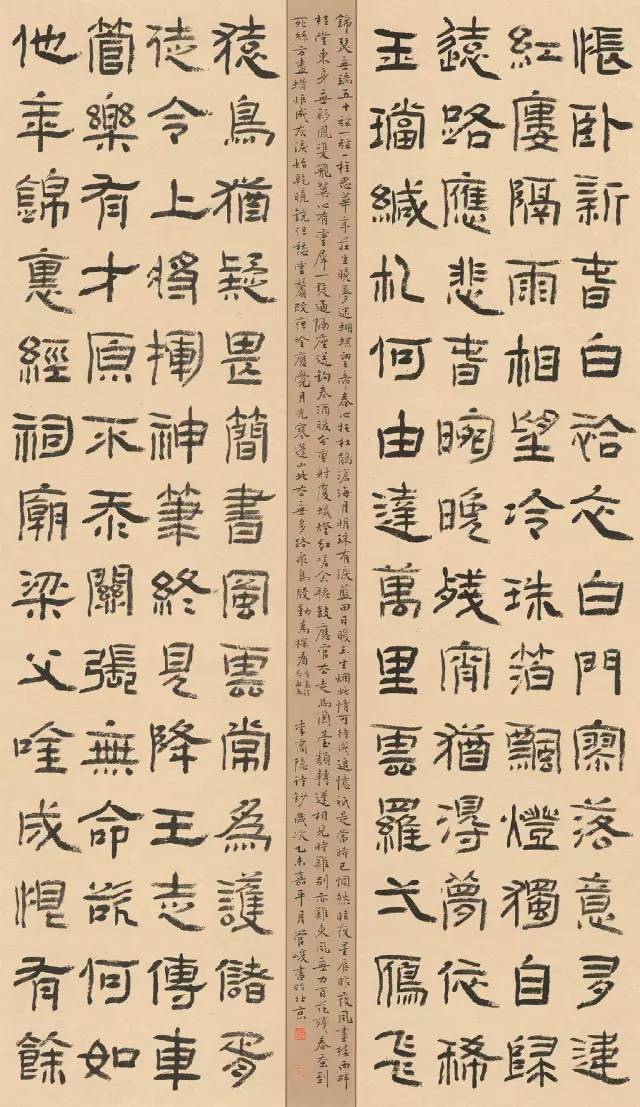 悵卧新春白袷衣白門寥落意多違
紅廔隔雨相望冷珠箔飄燈獨自歸
遠路應悲春晼晚殘宵猶得夢依稀
玉璫緘札何由達萬里雲羅弌鴈飛
錦瑟無端五十弦一弦一柱思華年莊生曉夢迷蝴蝶望帝春心托杜鵑滄海月明珠有淚藍田日暖玉生烟此情可待成追憶祇是當時已惘然昨夜星辰昨夜風畫樓西畔
桂堂東身無彩鳳雙飛翼心有靈犀一點通隔座送鉤春酒暖分曹射覆蠟燈紅嗟余聽鼓應官去走馬蘭臺類轉蓬相見時難別亦難東風無力百花殘春蠶到
死絲方盡蠟炬成灰淚始乾曉鏡但愁雲鬢改夜吟應覺月光寒蓬山此去無多路鳥殷勤爲探看 李商隱詩鈔歲次乙未嘉平月管峻書於北京
猿鳥猶疑畏簡書風雲常爲護儲胥
徒令上將揮神筆終見降王走傳車
管樂有才原不忝關張無命欲何如
他年錦裏經祠廟梁父唫成恨有餘